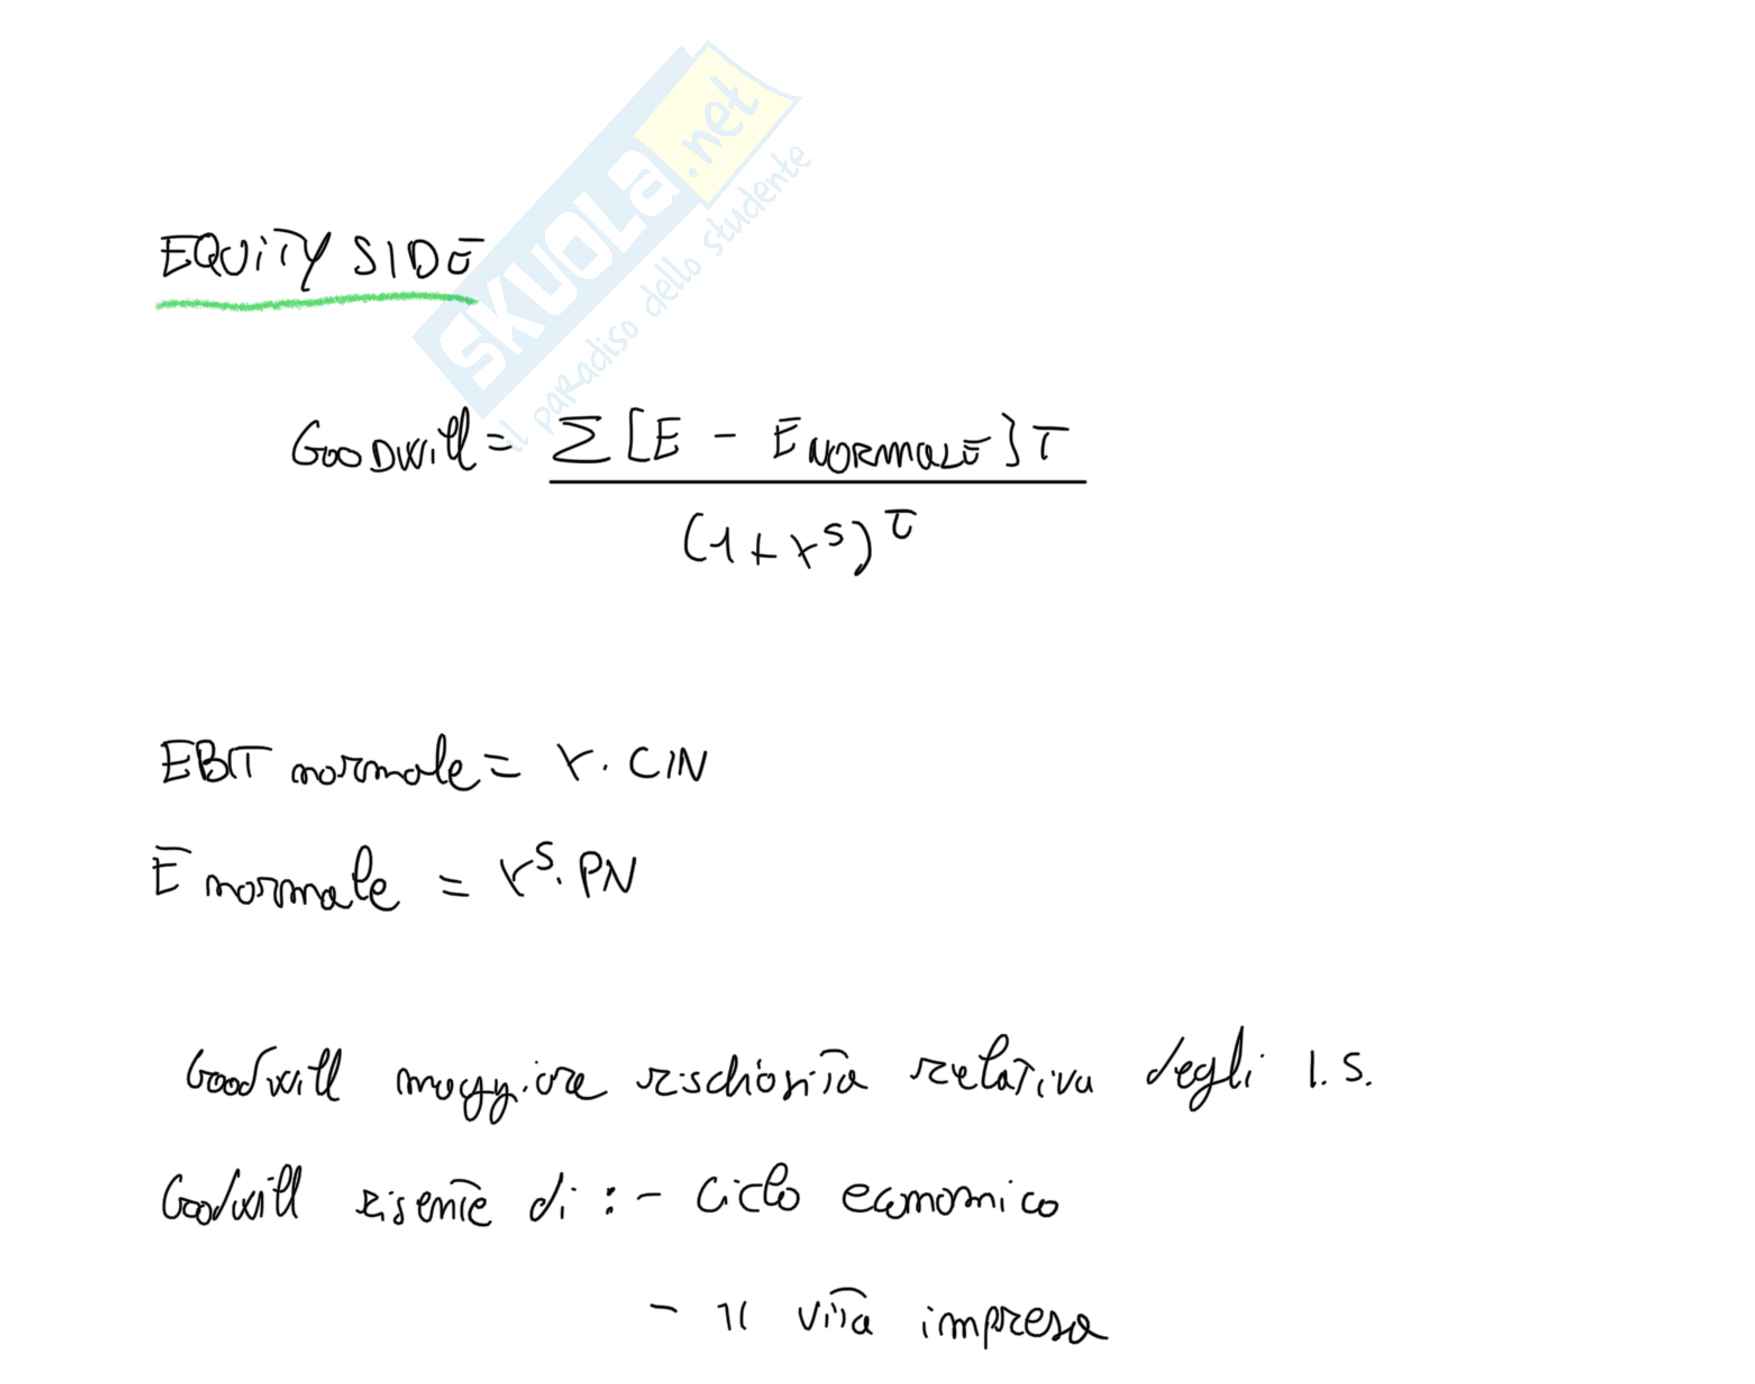 SKUOLa.net
il paradiso dello studente
EQUITY SIDE
GOODWill = Σ [E - E NORMALE] T
(1 + r^s)^T
EBIT normale = r. CIN
E normale = r^s. PN
Goodwill maggiore rischiosità relativa degli I.S.
Goodwill risente di : - ciclo economico
- vita impresa